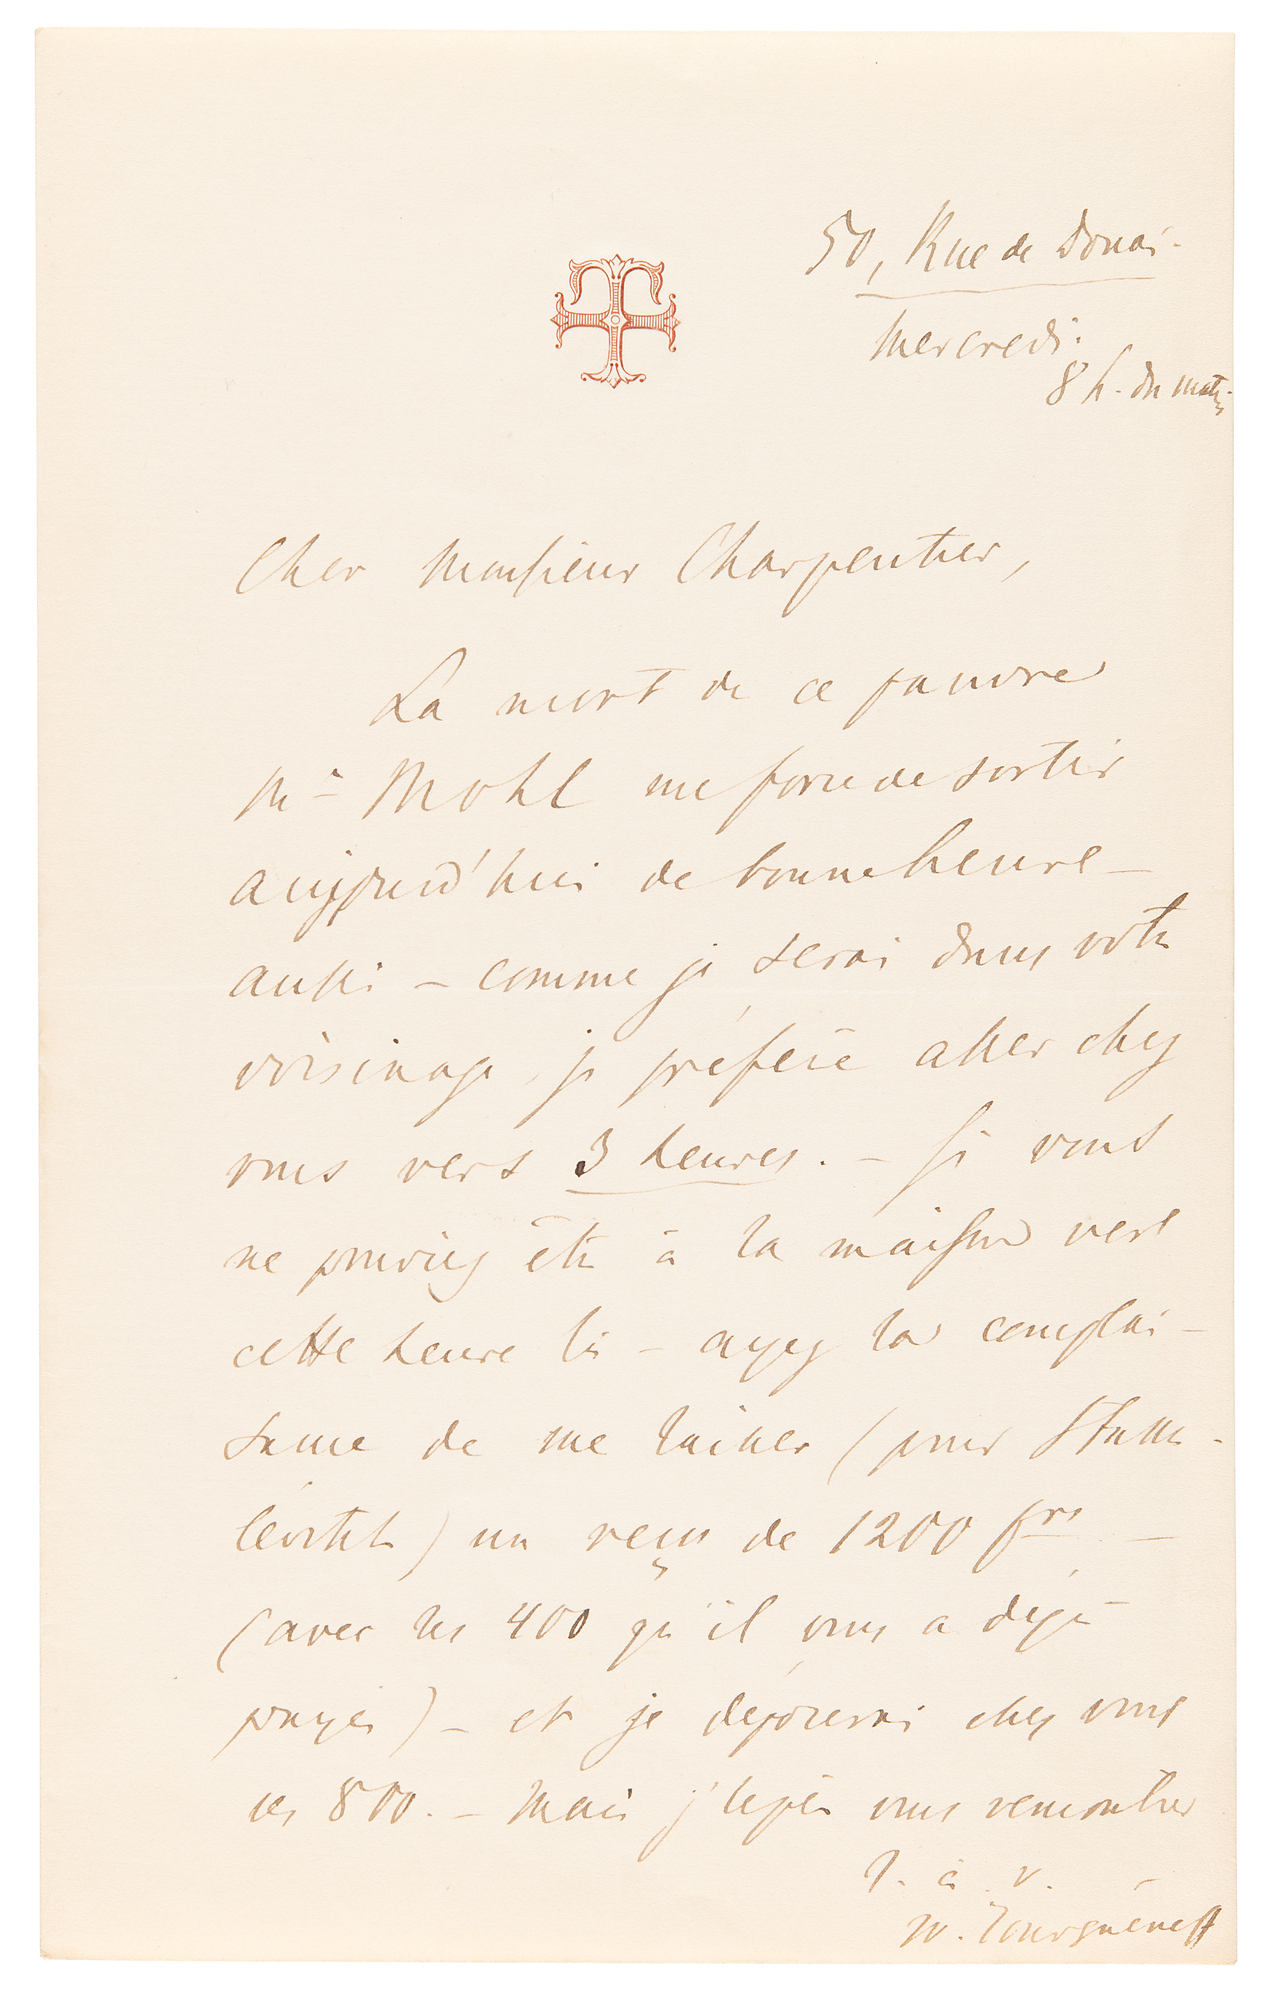 50, Rue de Douai.
Mercredi.
8 h. du matin
Cher Monsieur Charpentier,
La mort de ce pauvre
Mr Mohl me force de sortir
aujourd'hui de bonne heure –
aussi – comme je serai dans votre
voisinage, je préfère aller chez
vous vers 3 heures. – Si vous
ne pouviez être à la maison vers
cette heure là – ayez la complai-
sance de me laisser (pour Stassu-
lévitch) un reçu de 1200 frs –
(avec les 400 qu'il vous a déjà
payés) – et je déposerai chez vous
les 800. – Mais j'espère vous rencontrer
t. à. v.
Iv. Tourguéneff